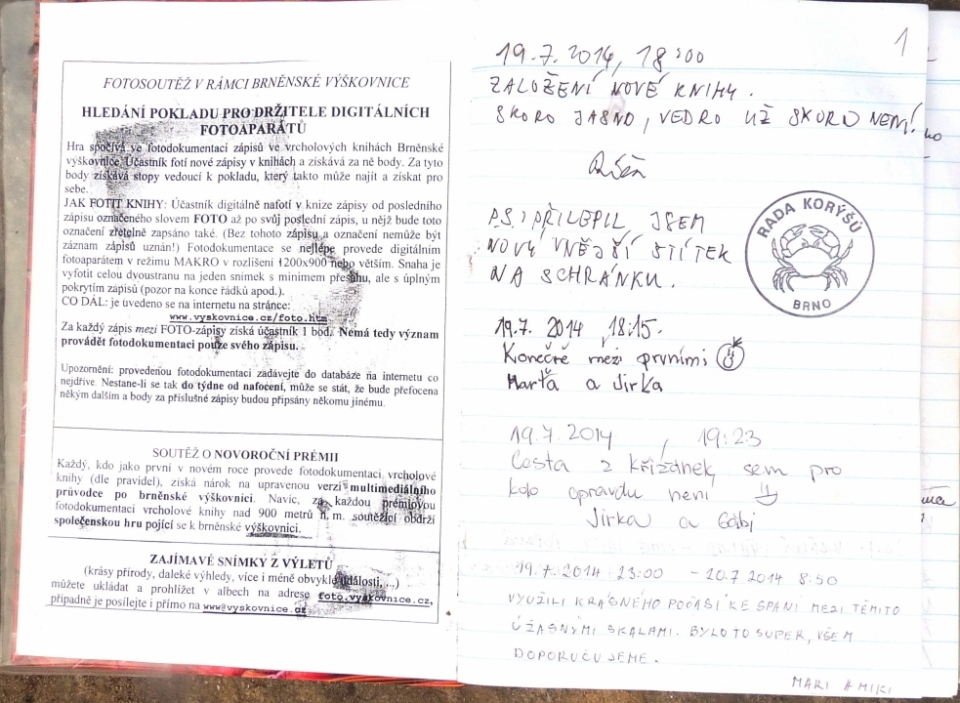 FOTOSOUTĚŽ V RÁMCI BRNĚNSKÉ VÝŠKOVNICE
HLEDÁNÍ POKLADU PRO DRŽITELE DIGITÁLNÍCH
FOTOAPARÁTŮ
Hra spočívá ve fotodokumentaci zápisů ve vrcholových knihách Brněnské
výškovnice. Účastník fotí nové zápisy v knihách a získává za ně body. Za tyto
body získává stopy vedoucí k pokladu, který takto může najít a získat pro
sebe.
JAK FOTIT KNIHY: Účastník digitálně nafotí v knize zápisy od posledního
zápisu označeného slovem FOTO až po svůj poslední zápis, u nějž bude toto
označení zřetelně zapsáno také. (Bez tohoto zápisu a označení nemůže být
záznam zápisů uznán!) Fotodokumentace se nejlépe provede digitálním
fotoaparátem v režimu MAKRO v rozlišení 1200x900 nebo větším. Snaha je
vyfotit celou dvoustranu na jeden snímek s minimem přesahu, ale s úplným
pokrytím zápisů (pozor na konce řádků apod.).
CO DÁL: je uvedeno se na internetu na stránce:
www.vyskovnice.cz/foto.htm
Za každý zápis mezi FOTO-zápisy získá účastník 1 bod. Nemá tedy význam
provádět fotodokumentaci pouze svého zápisu.
Upozornění: provedenou fotodokumentaci zadávejte do databáze na internetu co
nejdříve. Nestane-li se tak do týdne od nafocení, může se stát, že bude přefocena
někým dalším a body za příslušné zápisy budou připsány někomu jinému.
SOUTĚŽ O NOVOROČNÍ PRÉMII
Každý, kdo jako první v novém roce provede fotodokumentaci vrcholové
knihy (dle pravidel), získá nárok na upravenou verzi multimediálního
průvodce po brněnské výškovnici. Navíc, za každou prémiovou
fotodokumentaci vrcholové knihy nad 900 metrů n. m. soutěžící obdrží
společenskou hru pojící se k brněnské výškovnici.
ZAJÍMAVÉ SNÍMKY Z VÝLETŮ
(krásy přírody, daleké výhledy, více i méně obvyklé události, ...)
můžete ukládat a prohlížet v albech na adrese foto.vyskovnice.cz,
případně je posílejte i přímo na www@vyskovnice.cz
1
19.7.2014, 18:00
ZALOŽENÍ NOVÉ KNIHY.
SKORO JASNO, VEDRO UŽ SKORO NENÍ!
P.S. PŘILEPIL JSEM
NOVÝ VNĚJŠÍ ŠTÍTEK
NA SCHRÁNKU.
RADA KORÝŠŮ
BRNO
19.7. 2014, 18:15.
Konečně mezi prvními
Marťa a Jirka
19.7.2014, 19:23
Cesta z křižánek, sem pro
kolo opravdu není
Jirka a Gábi
19.7.2014 23:00 - 20.7 2014 8:50
VYUŽILI KRÁSNÉHO POČASÍ KE SPANÍ MEZI TĚMITO
ÚŽASNÝMI SKALAMI. BYLO TO SUPER, VŠEM
DOPORUČUJEME.
MARI & MIKI